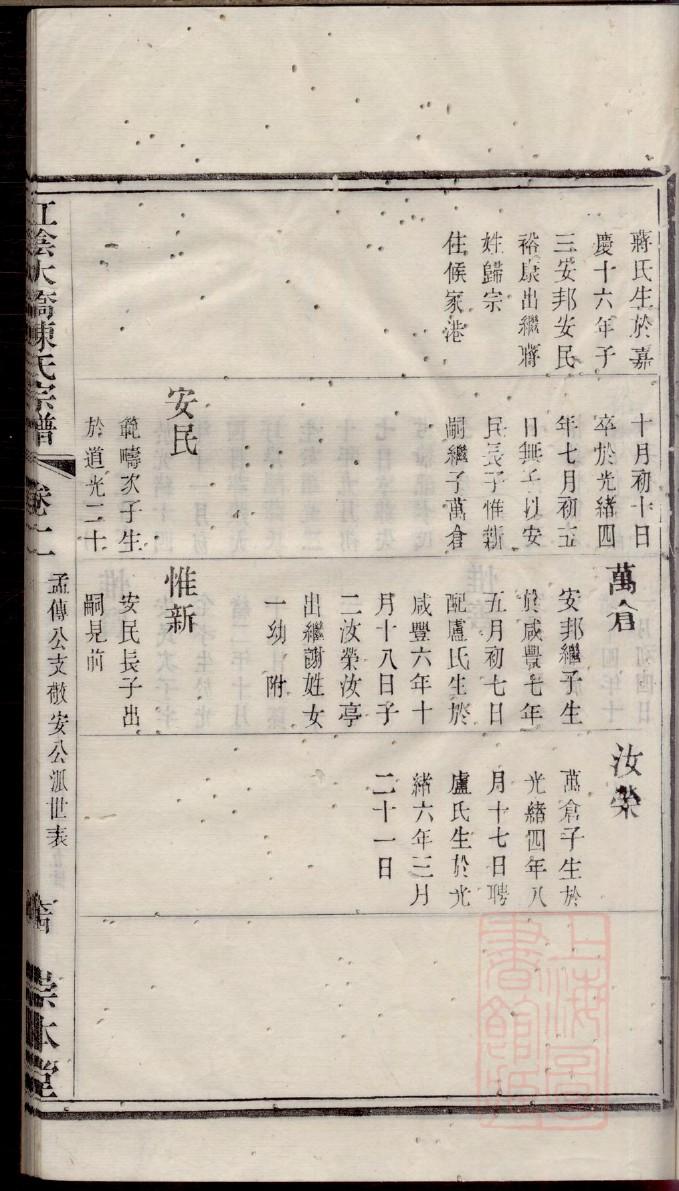 蔣氏生於嘉
慶十六年子
三安邦安民
裕康出繼蔣
姓歸宗
住候家港
十月初十日
卒於光緒四
年七月初五
日無子以安
民長子惟新
嗣繼子萬倉
安民
範疇次子生
於道光二十
萬倉
安邦繼子生
於咸豐七年
五月初七日
配盧氏生於
咸豐六年十
月十八日子
二汝榮汝亭
出繼謝姓女
一幼 附
惟新
安民長子出
嗣見前
汝榮
萬倉子生於
光緒四年八
月十七日聘
盧氏生於光
緒六年三月
二十一日
江陰大橋陳氏宗譜
卷十二
孟傳公支敬安公派世表
崇本堂
上海圖
書館藏